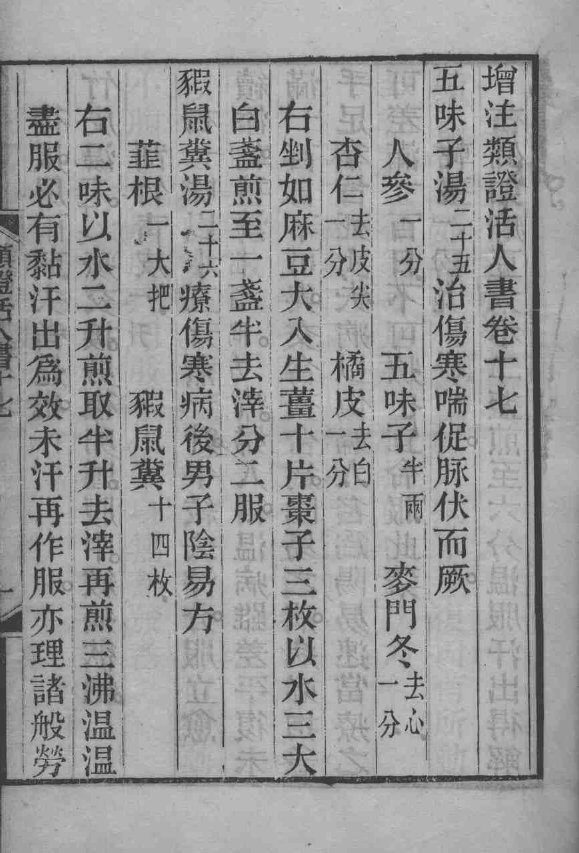 增注類證活人書卷十七
五味子湯二十五治傷寒喘促脉伏而厥
人參一分 五味子半兩 麥門冬去心一分
杏仁去皮尖一分 橘皮去白一分
右剉如麻豆大入生薑十片棗子三枚以水三大
白盞煎至一盞半去滓分二服
豭鼠糞湯二十六療傷寒病後男子陰易方
韮根一大把 豭鼠糞十四枚
右二味以水二升煎取半升去滓再煎三沸温温
盡服必有黏汗出爲效未汗再作服亦理諸般勞
類證活人書十七
一